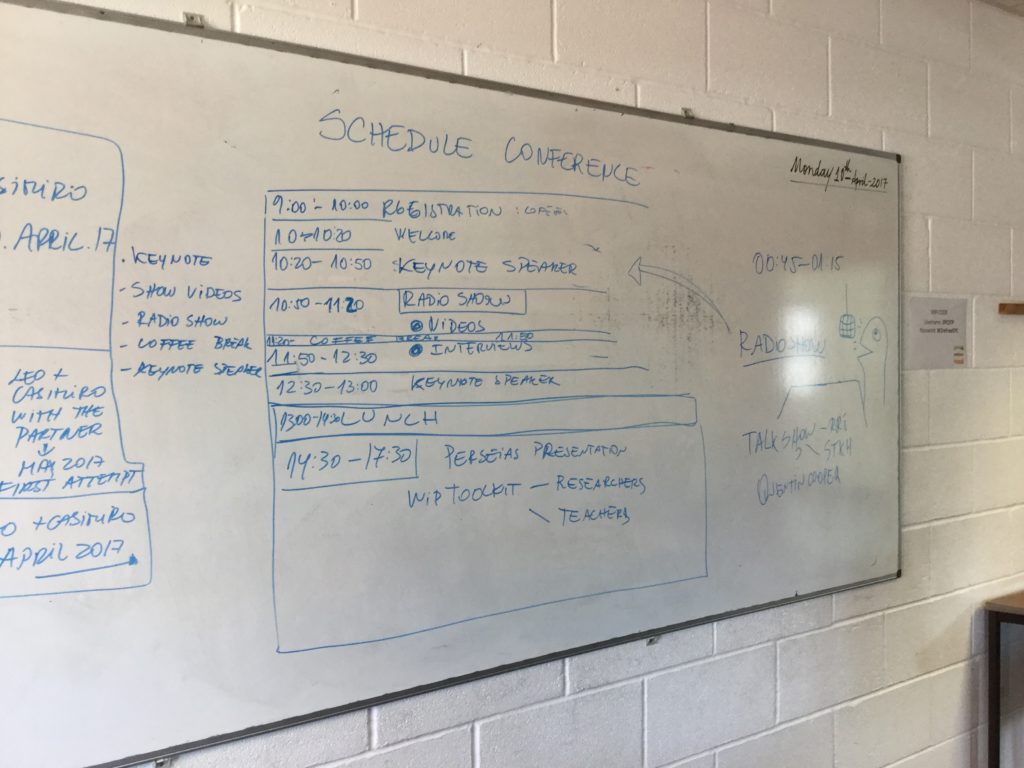 SCHEDULE CONFERENCE
Monday 10th April-2017
CASIMIRO
APRIL.17
LEO +
CASIMIRO
WITH THE
PARTNER
MAY 2017
FIRST ATTEMPT
+CASIMIRO
APRIL 2017
. KEYNOTE
- SHOW VIDEOS
- RADIO SHOW
- COFFEE BREAK
- KEYNOTE SPEAKER
9:00 - 10:00 REGISTRATION : COFFEE
10-10:20 WELCOME
10:20- 10:50 KEYNOTE SPEAKER
10:50-11:20 RADIO SHOW
VIDEOS
11:20- COFFEE BREAK 11:50
11:50-12:30 INTERVIEWS
12:30-13:00 KEYNOTE SPEAKER
13:00-14:30 LUNCH
14:30-17:30 PERSEIAS PRESENTATION
WIP TOOLKIT - RESEARCHERS
TEACHERS
00:45-01:15
RADIOSHOW
TALK SHOW - RRI
QUENTIN COOPER